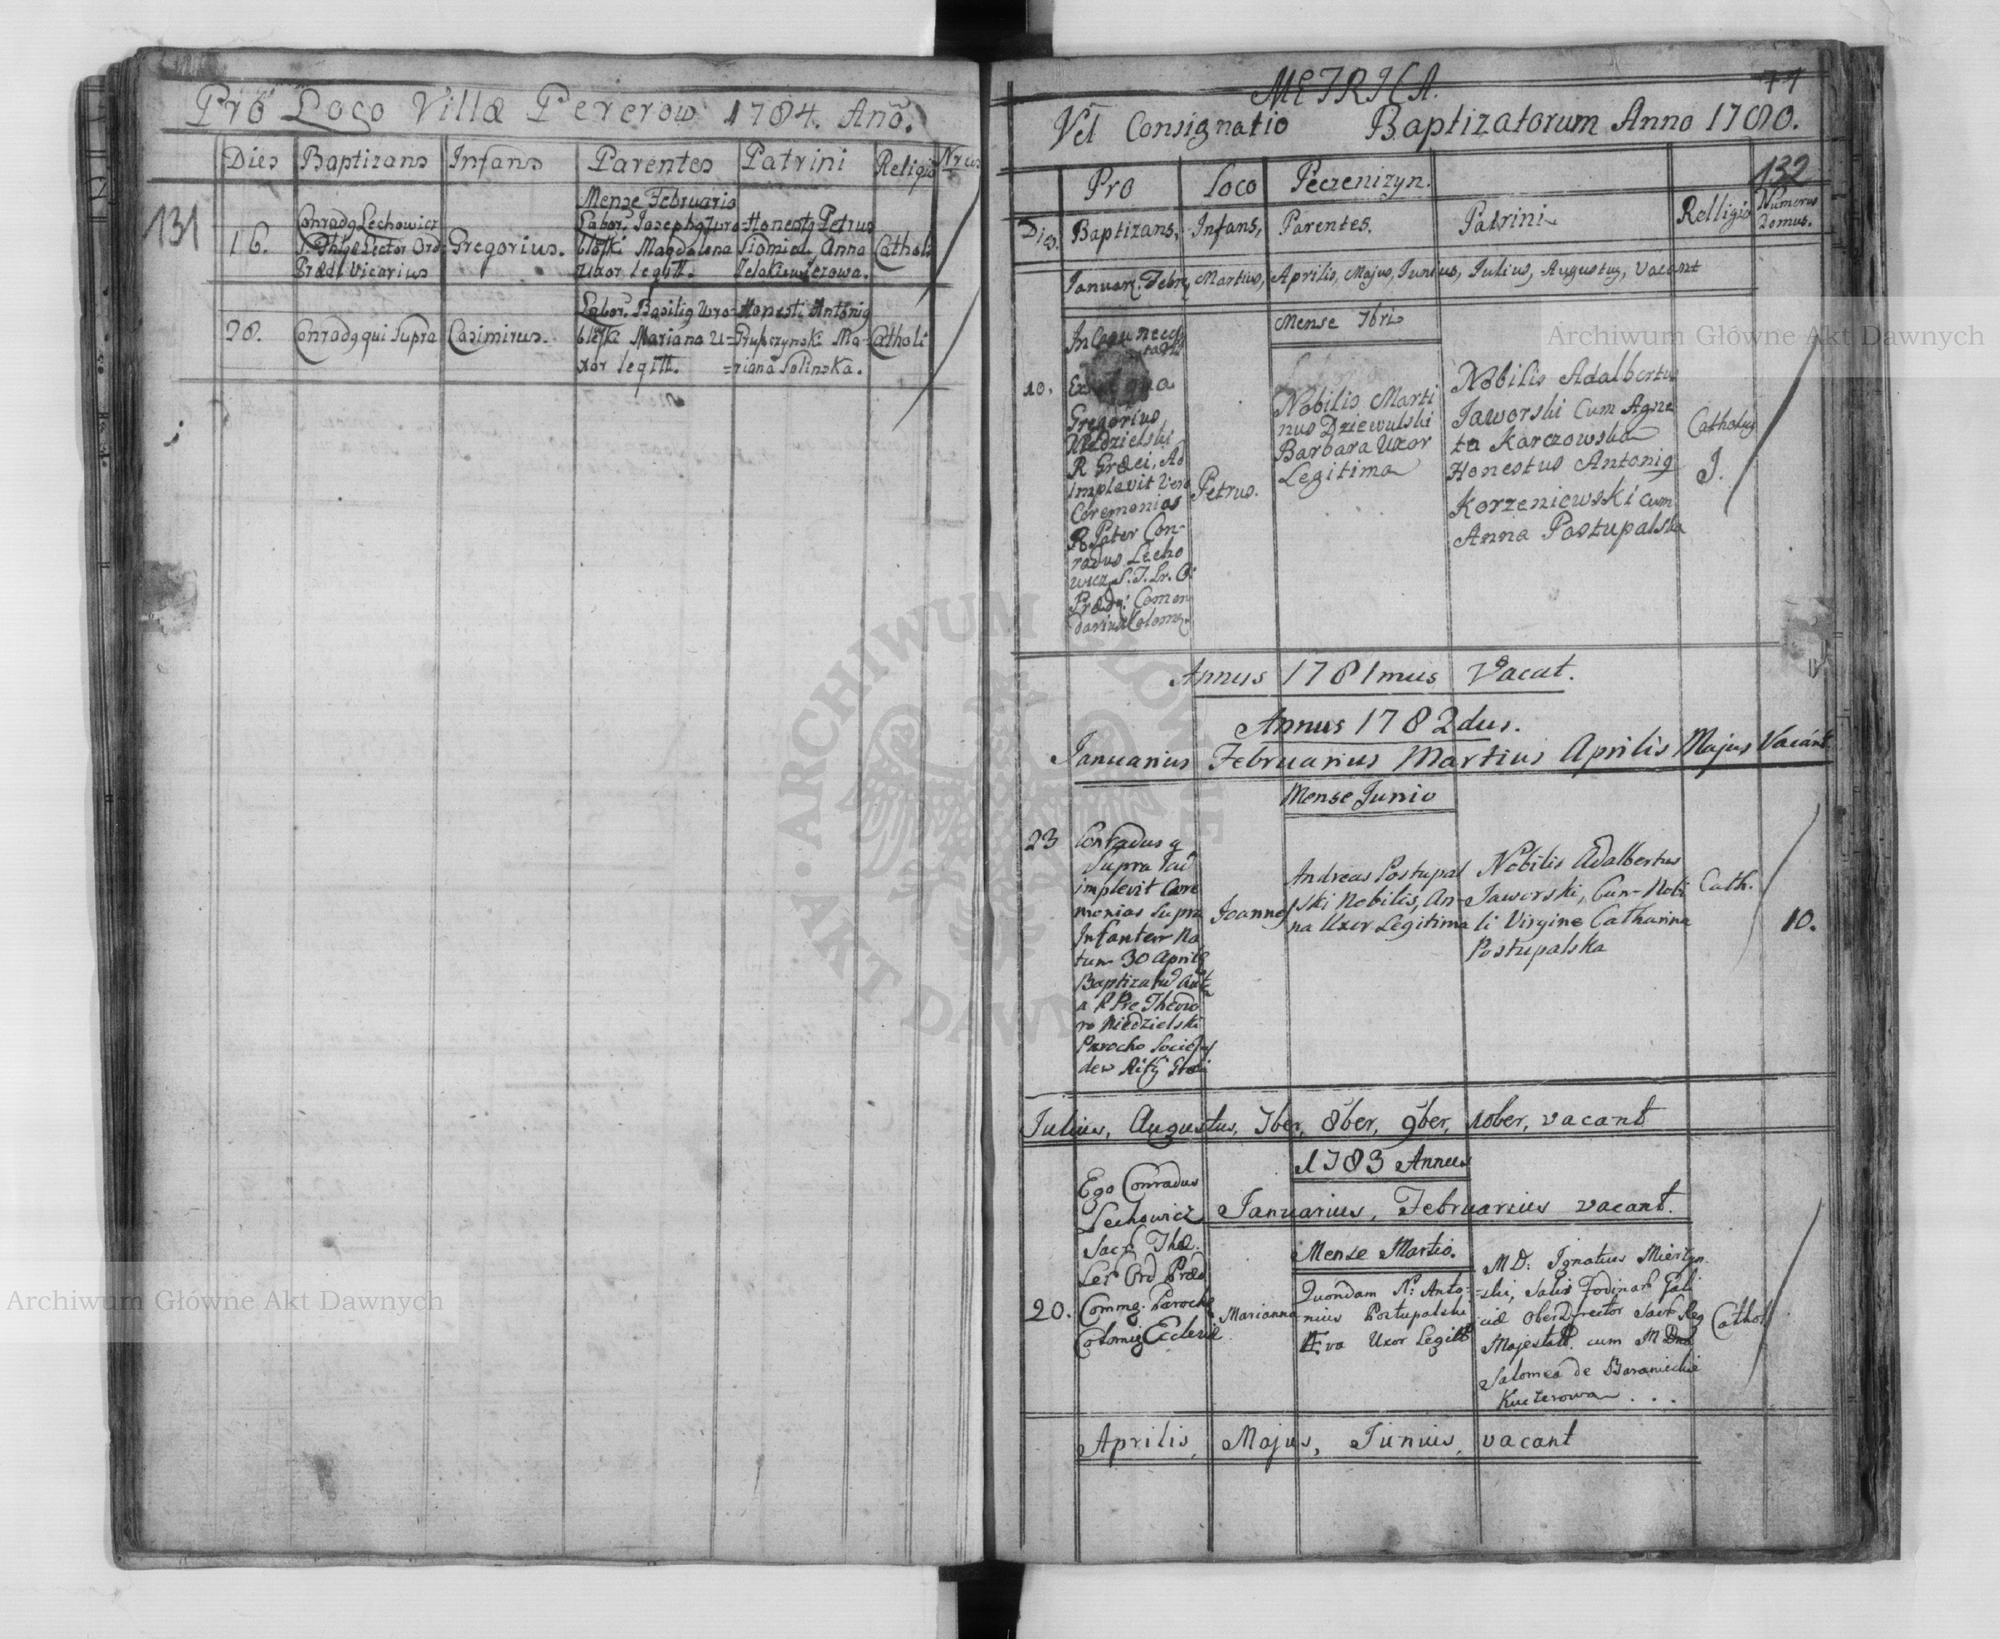 Pro Loco Villæ Pererow 1784. Año.
Dies Baptizans Infans Parentes Patrini Religio Nrus
131
Mense Februario
16. Conradq Lechowicz
Lector Ord:
Præd: Vicarius
Gregorius.
Labor. Josephq Wro=
blefki Magdalena
Uxor legitt.
Honestq Petrus
Siomia Anna
Telakiewiczowa.
Catholi
20. Conradq qui supra
Casimirus.
Labor. Basiliq Wro=
blefki Mariana U=
xor legitt.
Honesti Antoniq
Prupczynski Ma=
=riana Solinska.
Catholi
METRICA.
77
Vel Consignatio Baptizatorum Anno 1780.
132
Pro Loco Peczenizyn.
Dies. Baptizans, Infans, Parentes. Patrini Relligio Numerus
Domus.
Januar, Febr, Martius, Aprilis, Majus, Junius, Julius, Augustus, vacant
Mense 7bris
10.
In Casu neces
tatis
Ex qua
Gregorius
Niedzielski
R. Græci, Ad
implevit vero
Ceremonias
R. Pater Con-
radus Lecho
wicz S. T. Lr. O:
Præd: Comen
darius Colom.
Petrus.
Nobilis Marti
nus Dziewulski
Barbara Uxor
Legitima
Nobilis Adalbertus
Jaworski Cum Agne
ta Karczowska
Honestus Antoniq
Korzeniewski cum
Anna Postupalska
Catholiq
J.
Annus 1781mus Vacat.
Annus 1782dus.
Januarius Februarius Martius Aprilis Majus Vacant.
Mense Junio
23 Conradus q
Supra ad
implevit Cære
monias supra
Infantem Na
tum 30 Aprilis
Baptizatu
a R Pre Theodo
ro Niedzielski
Parocho
Joannes
Andreas Postupal
ski Nobilis, An-
na Uxor Legitima
Nobilis Adalbertus
Jaworski, Cum Nobi
li Virgine Catharina
Postupalska
Cath.
10.
Julius, Augustus, 7ber, 8ber, 9ber, 10ber, vacant
1783 Annus
Januarius, Februarius vacant.
Mense Martio.
20.
Ego Conradus
Lechowicz
Sacr. Thæ.
Ler Ord Præd
Commq. Parochq
Colomiq Ecclesiæ
Marianna
Quondam N: Anto-
nius Postupalski
Eva Uxor Legitt
MD: Ignatius Mierzyn
ski, Salis Fodinar Gali
ciæ OberDirector Sacr Reg
Majestatt. cum M Dna
Salomea de Baranieckie
Kuczerowa . . .
Cathol
Aprilis, Majus, Junius, vacant
Archiwum Główne Akt Dawnych
Archiwum Główne Akt Dawnych
ARCHIWUM GŁÓWNE
AKT DAWNYCH